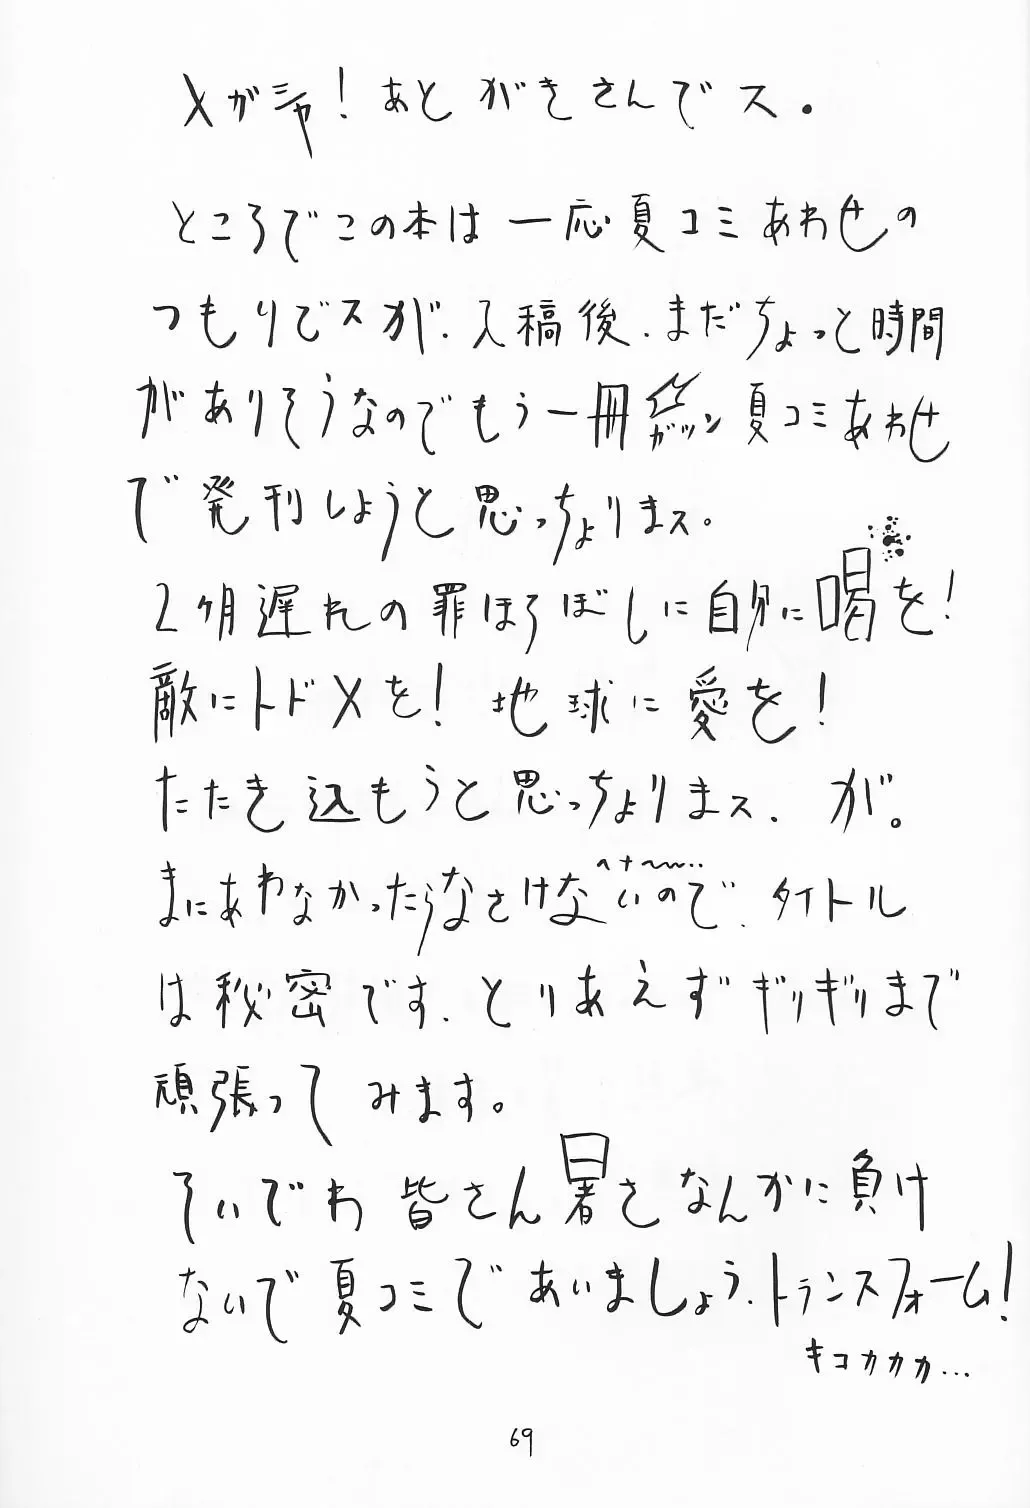 メガシャ！あとがきさんでス．
ところでこの本は一応夏コミあわせの
つもりでスが、入稿後、まだちょっと時間
がありそうなのでもう一冊ガツン夏コミあわせ
で発刊しようと思っちょりまス。
2ヶ月遅れの罪ほろぼしに自分に喝を！
敵にトドメを！地球に愛を！
たたき込もうと思っちょりまス、が。
まにあわなかったらなさけないので、タイトル
は秘密です、とりあえずギリギリまで
頑張ってみます。
そいでわ皆さん暑さなんかに負け
ないで夏コミであいましょう、トランスフォーム！
キコカカカ…
69